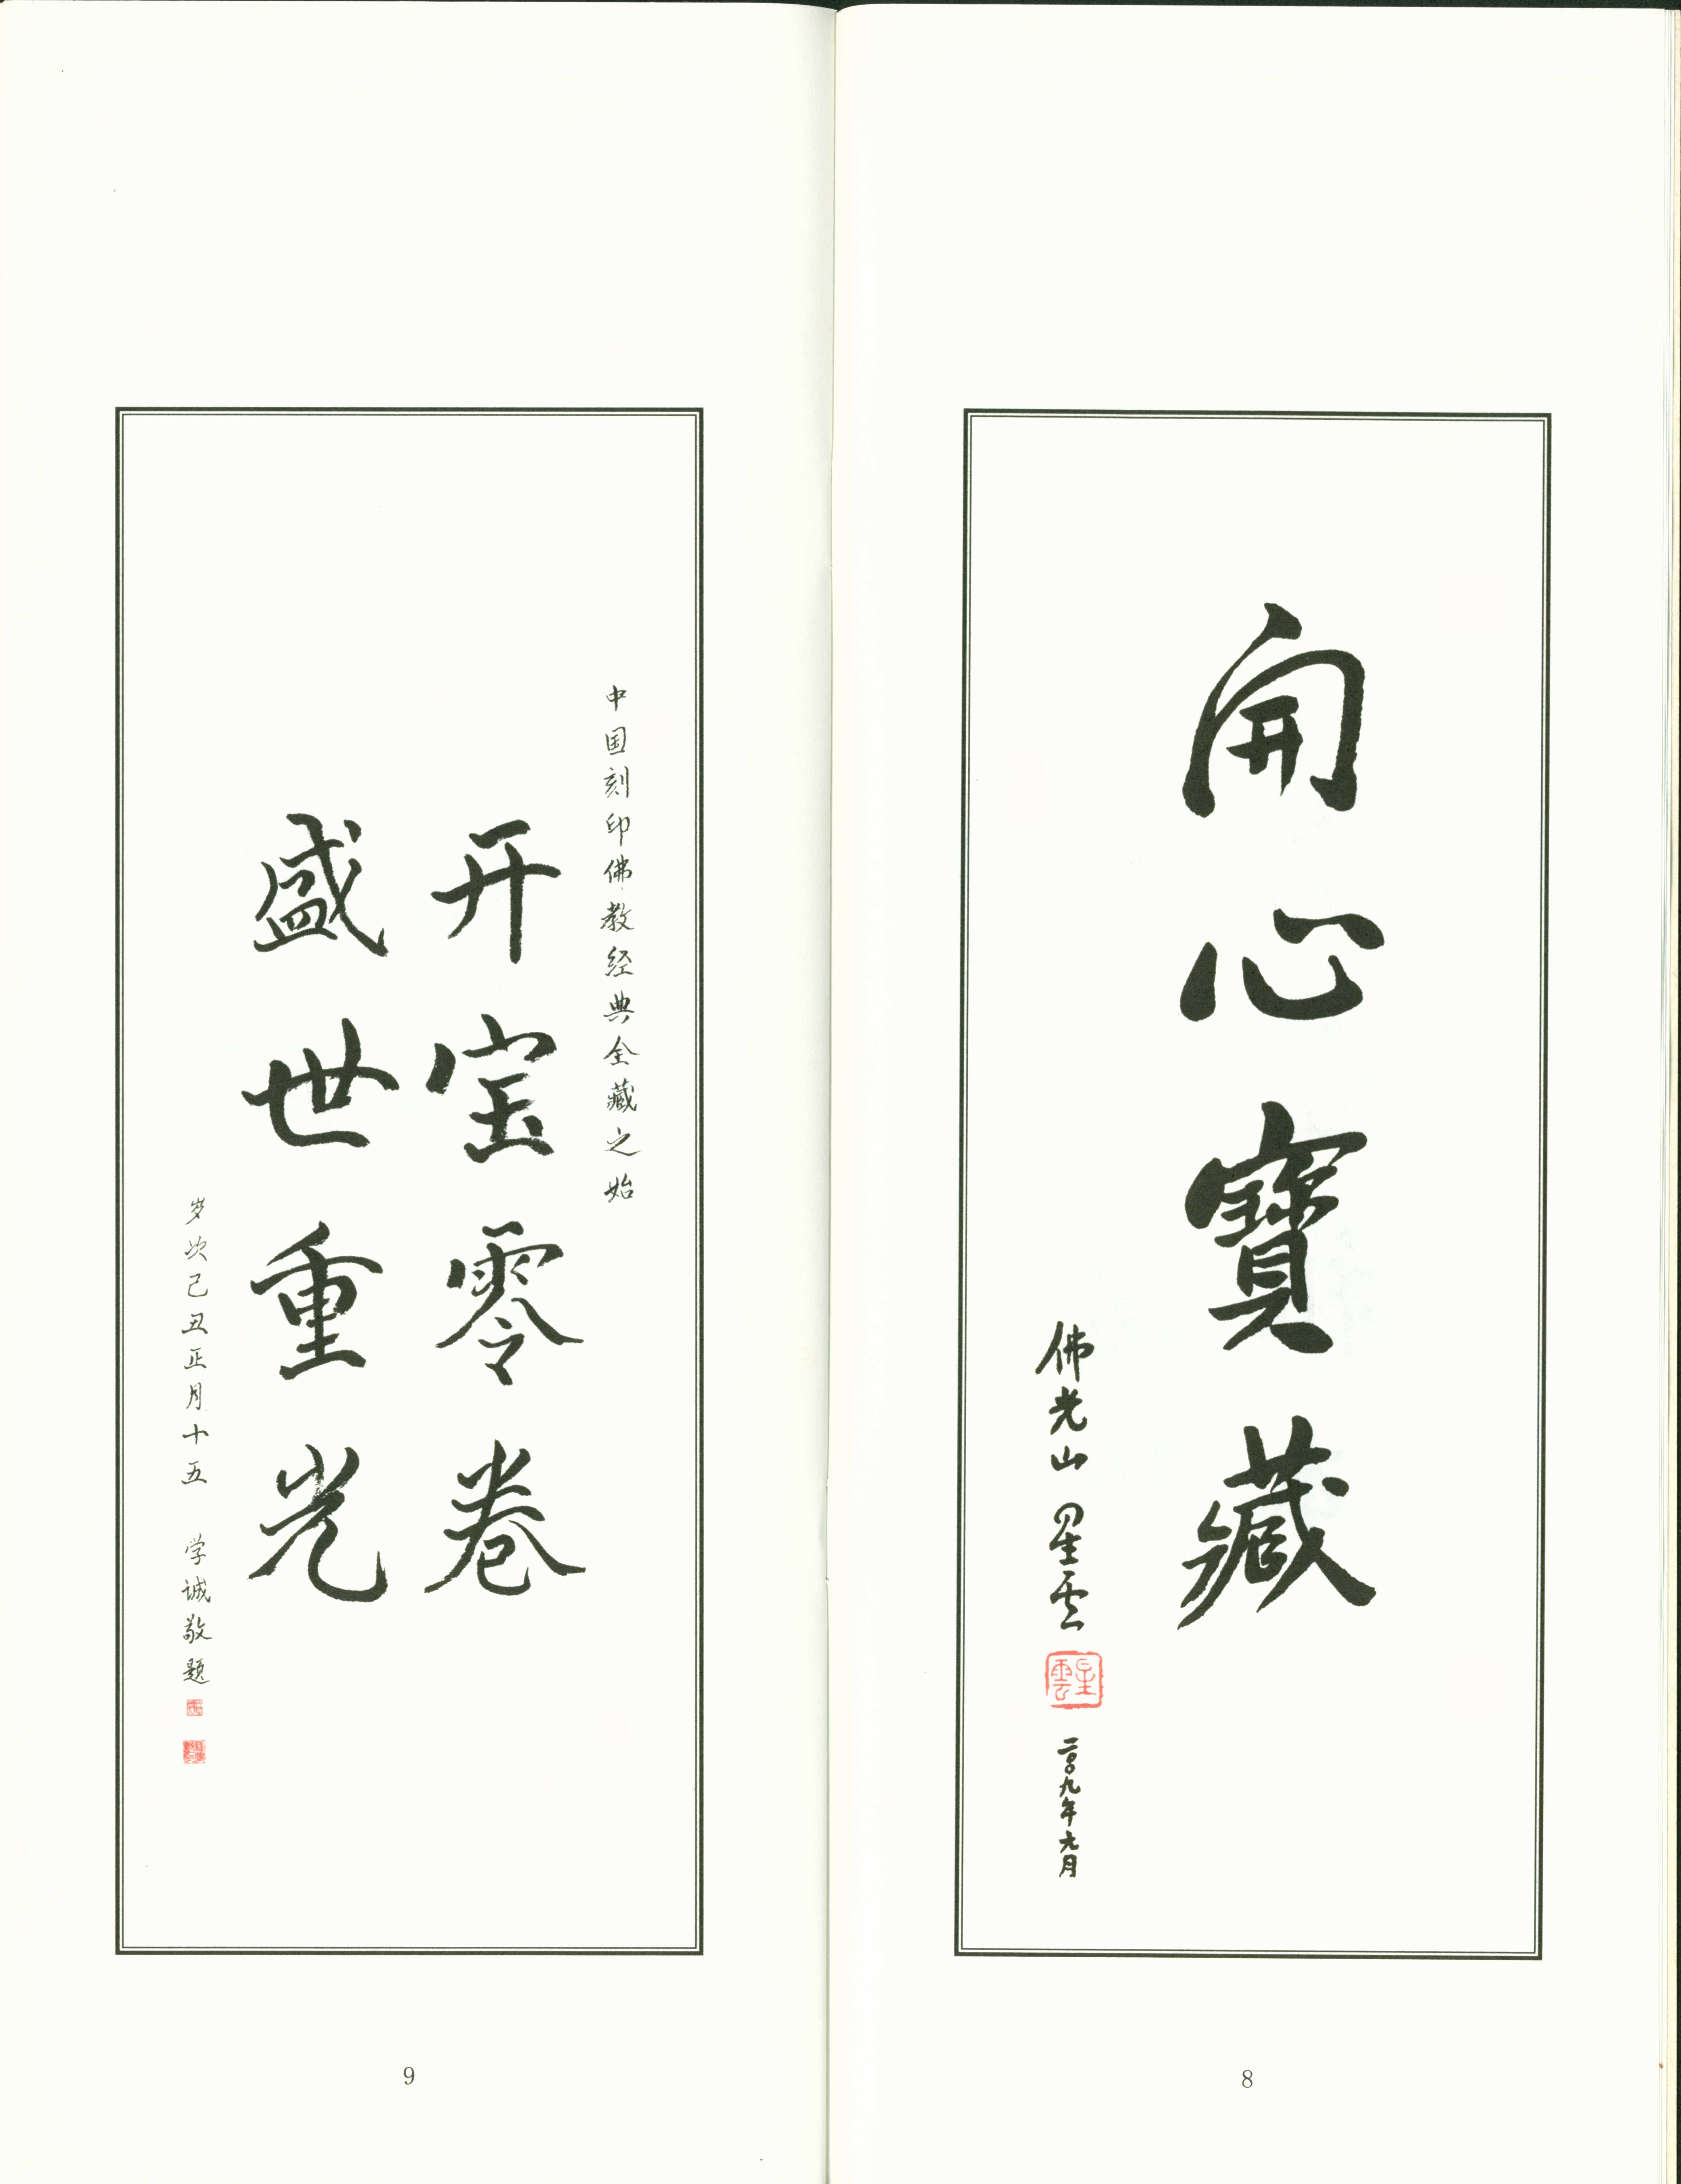 開心寶藏
佛光山 星雲
星雲
二〇〇九年九月
8
中国刻印佛教经典全藏之始
开宝零卷
盛世重光
岁次己丑正月十五 学诚敬题
9